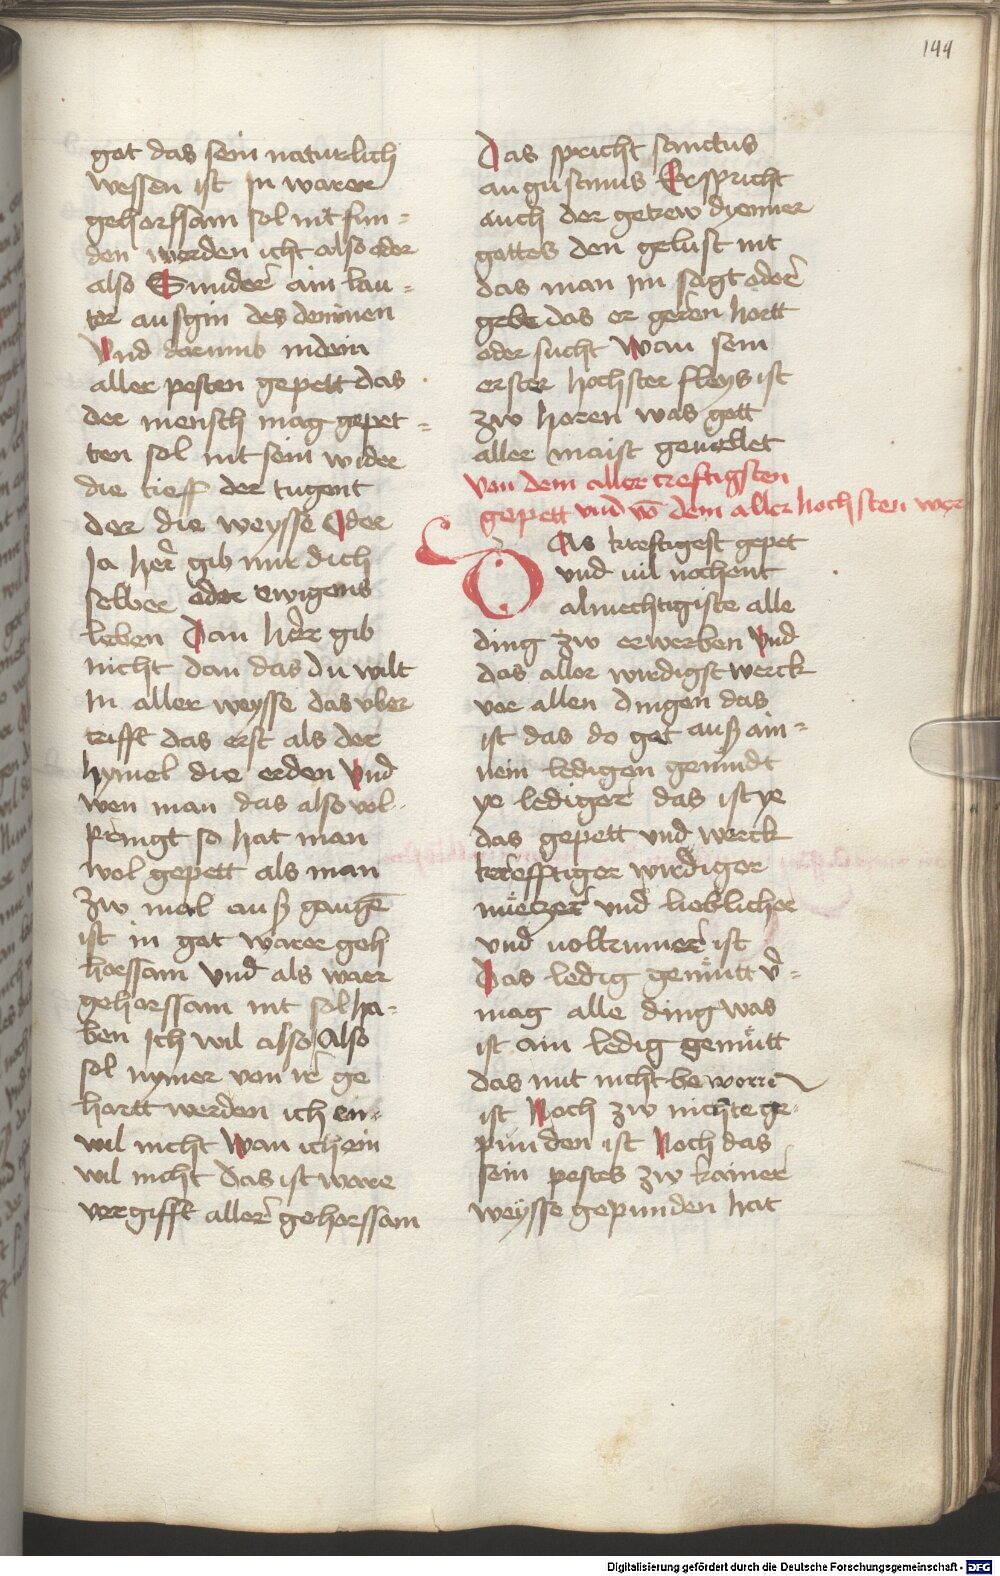 144
got das sein naturlich
wessen ist In warer
gehorssam sol nit fun-
den werden icht also oder
also Sunderͤ ain lau-
ter ausgin des deininen
Vnd darumb indein
aller pesten gepett das
der mensch mag gepet-
ten sol nit sein wider
die tieff der tugent
der die weysse Oder
Ja her̄ gib mir dich
selber oder ewigens
leben Dan herr gib
nicht dan das du wilt
In aller weysse das vber
trifft das erst als der
hymel die erden Vnd
wen man das also vol-
pringt so hat man
wol gepett als man
zw mal auß gangē
ist in got warer geh
horssam Vnd als waer
gehorssam nit sol ha-
ben Ich wil also Also
sol nymer von ir ge
hortt werden ich en-
wil nicht Wan ich ein
wil nicht das ist ware
vergifft aller gehorssam
Das spricht sanctus
augustinus Er spricht
auch der getrew dyenner
gottes den gelust nit
das man im sagt oder
gebe das er geren hortt
oder sucht Wan sein
erster hochster fleys ist
zw horen was gott
aller maist geuellet
Von dem aller creftigsten
gepett vnd vō dem aller hochsten wer
DAs kreftigest gepet
vnd vil nochent
almechtigiste alle
ding zw erwerben Vnd
das aller wirdigst werck
vor allen dingen das
ist das do get auß ain-
nem ledigen gemudt
ye lediger das ist ye
das gepett vnd werck
krefftiger wirdiger
nueczer vnd lieblicher
vnd uolkumer ist
Das ledig gemutt v̄-
mag alle ding Was
ist ain ledig gemutt
das mit nicht beworren
ist Noch zw nichte ge-
punden ist Noch das
sein pestes zw kainer
weysse gepunden hat
Digitalisierung gefördert durch die Deutsche Forschungsgemeinschaft - DFG